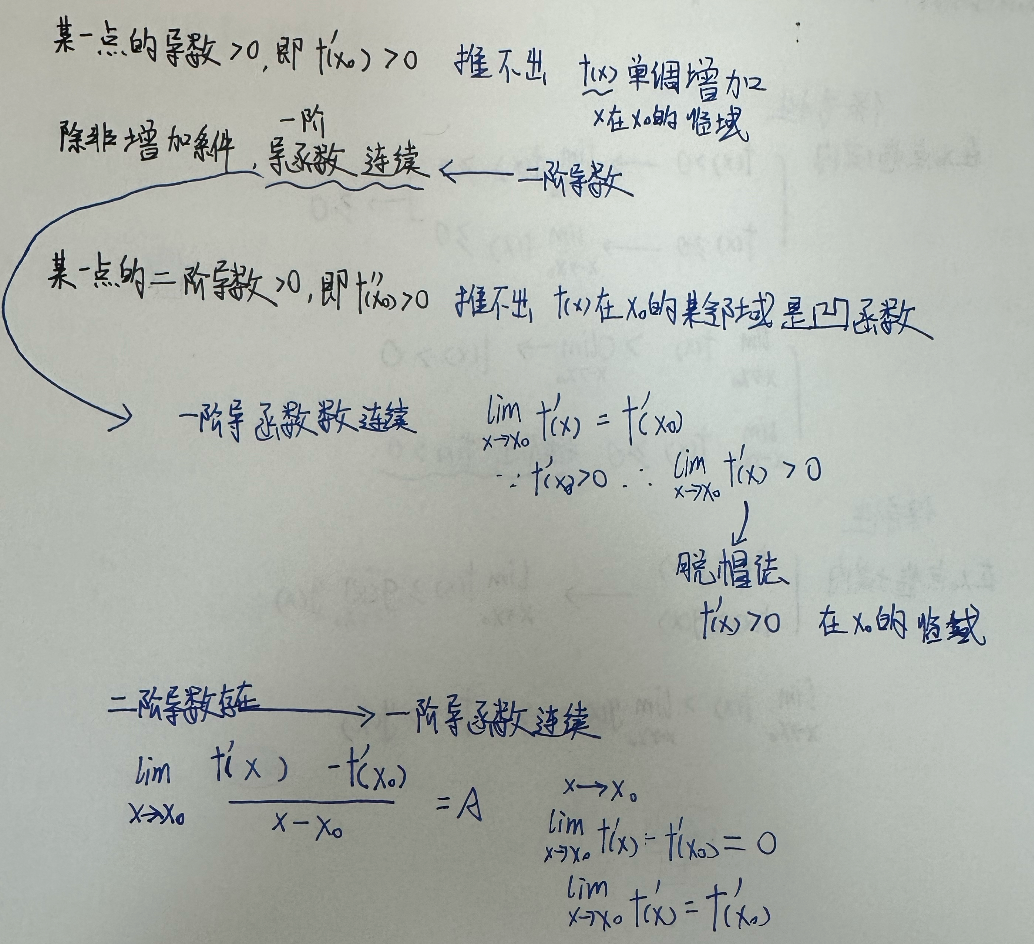 某一点的导数>0,即 f'(x₀)>0 推不出 f(x) 单调增加
x在x₀的临域
一阶
除非增加条件,导函数 连续 ← 二阶导数
某一点的二阶导数>0,即f''(x₀)>0 推不出 f(x)在x₀的某邻域是凹函数
→ 一阶导函数数连续 lim x→x₀ f'(x) = f'(x₀)
∵ f'(x₀)>0 ∴ lim x→x₀ f'(x) > 0
↓
脱帽法
f'(x)>0 在x₀的临域
二阶导数存在 → 一阶导函数连续
lim x→x₀ (f'(x) - f'(x₀))/(x-x₀) = A
x→x₀
lim x→x₀ f'(x) - f'(x₀) = 0
lim x→x₀ f'(x) = f'(x₀)